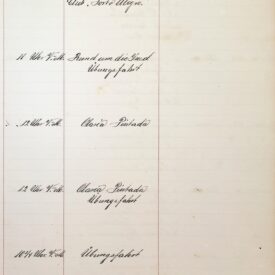 Club, Porto Alegre.
11 Uhr V. M. Rund um die Insel
Übungsfahrt
12 Uhr V. M. Olaria - Pintada
12 Uhr V. M. Olaria - Pintada
Übungsfahrt
10¾ Uhr V. M. Übungsfahrt